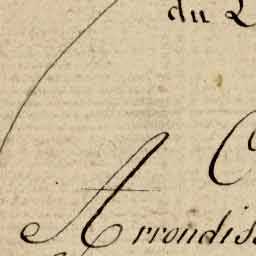 du
Arrondiss